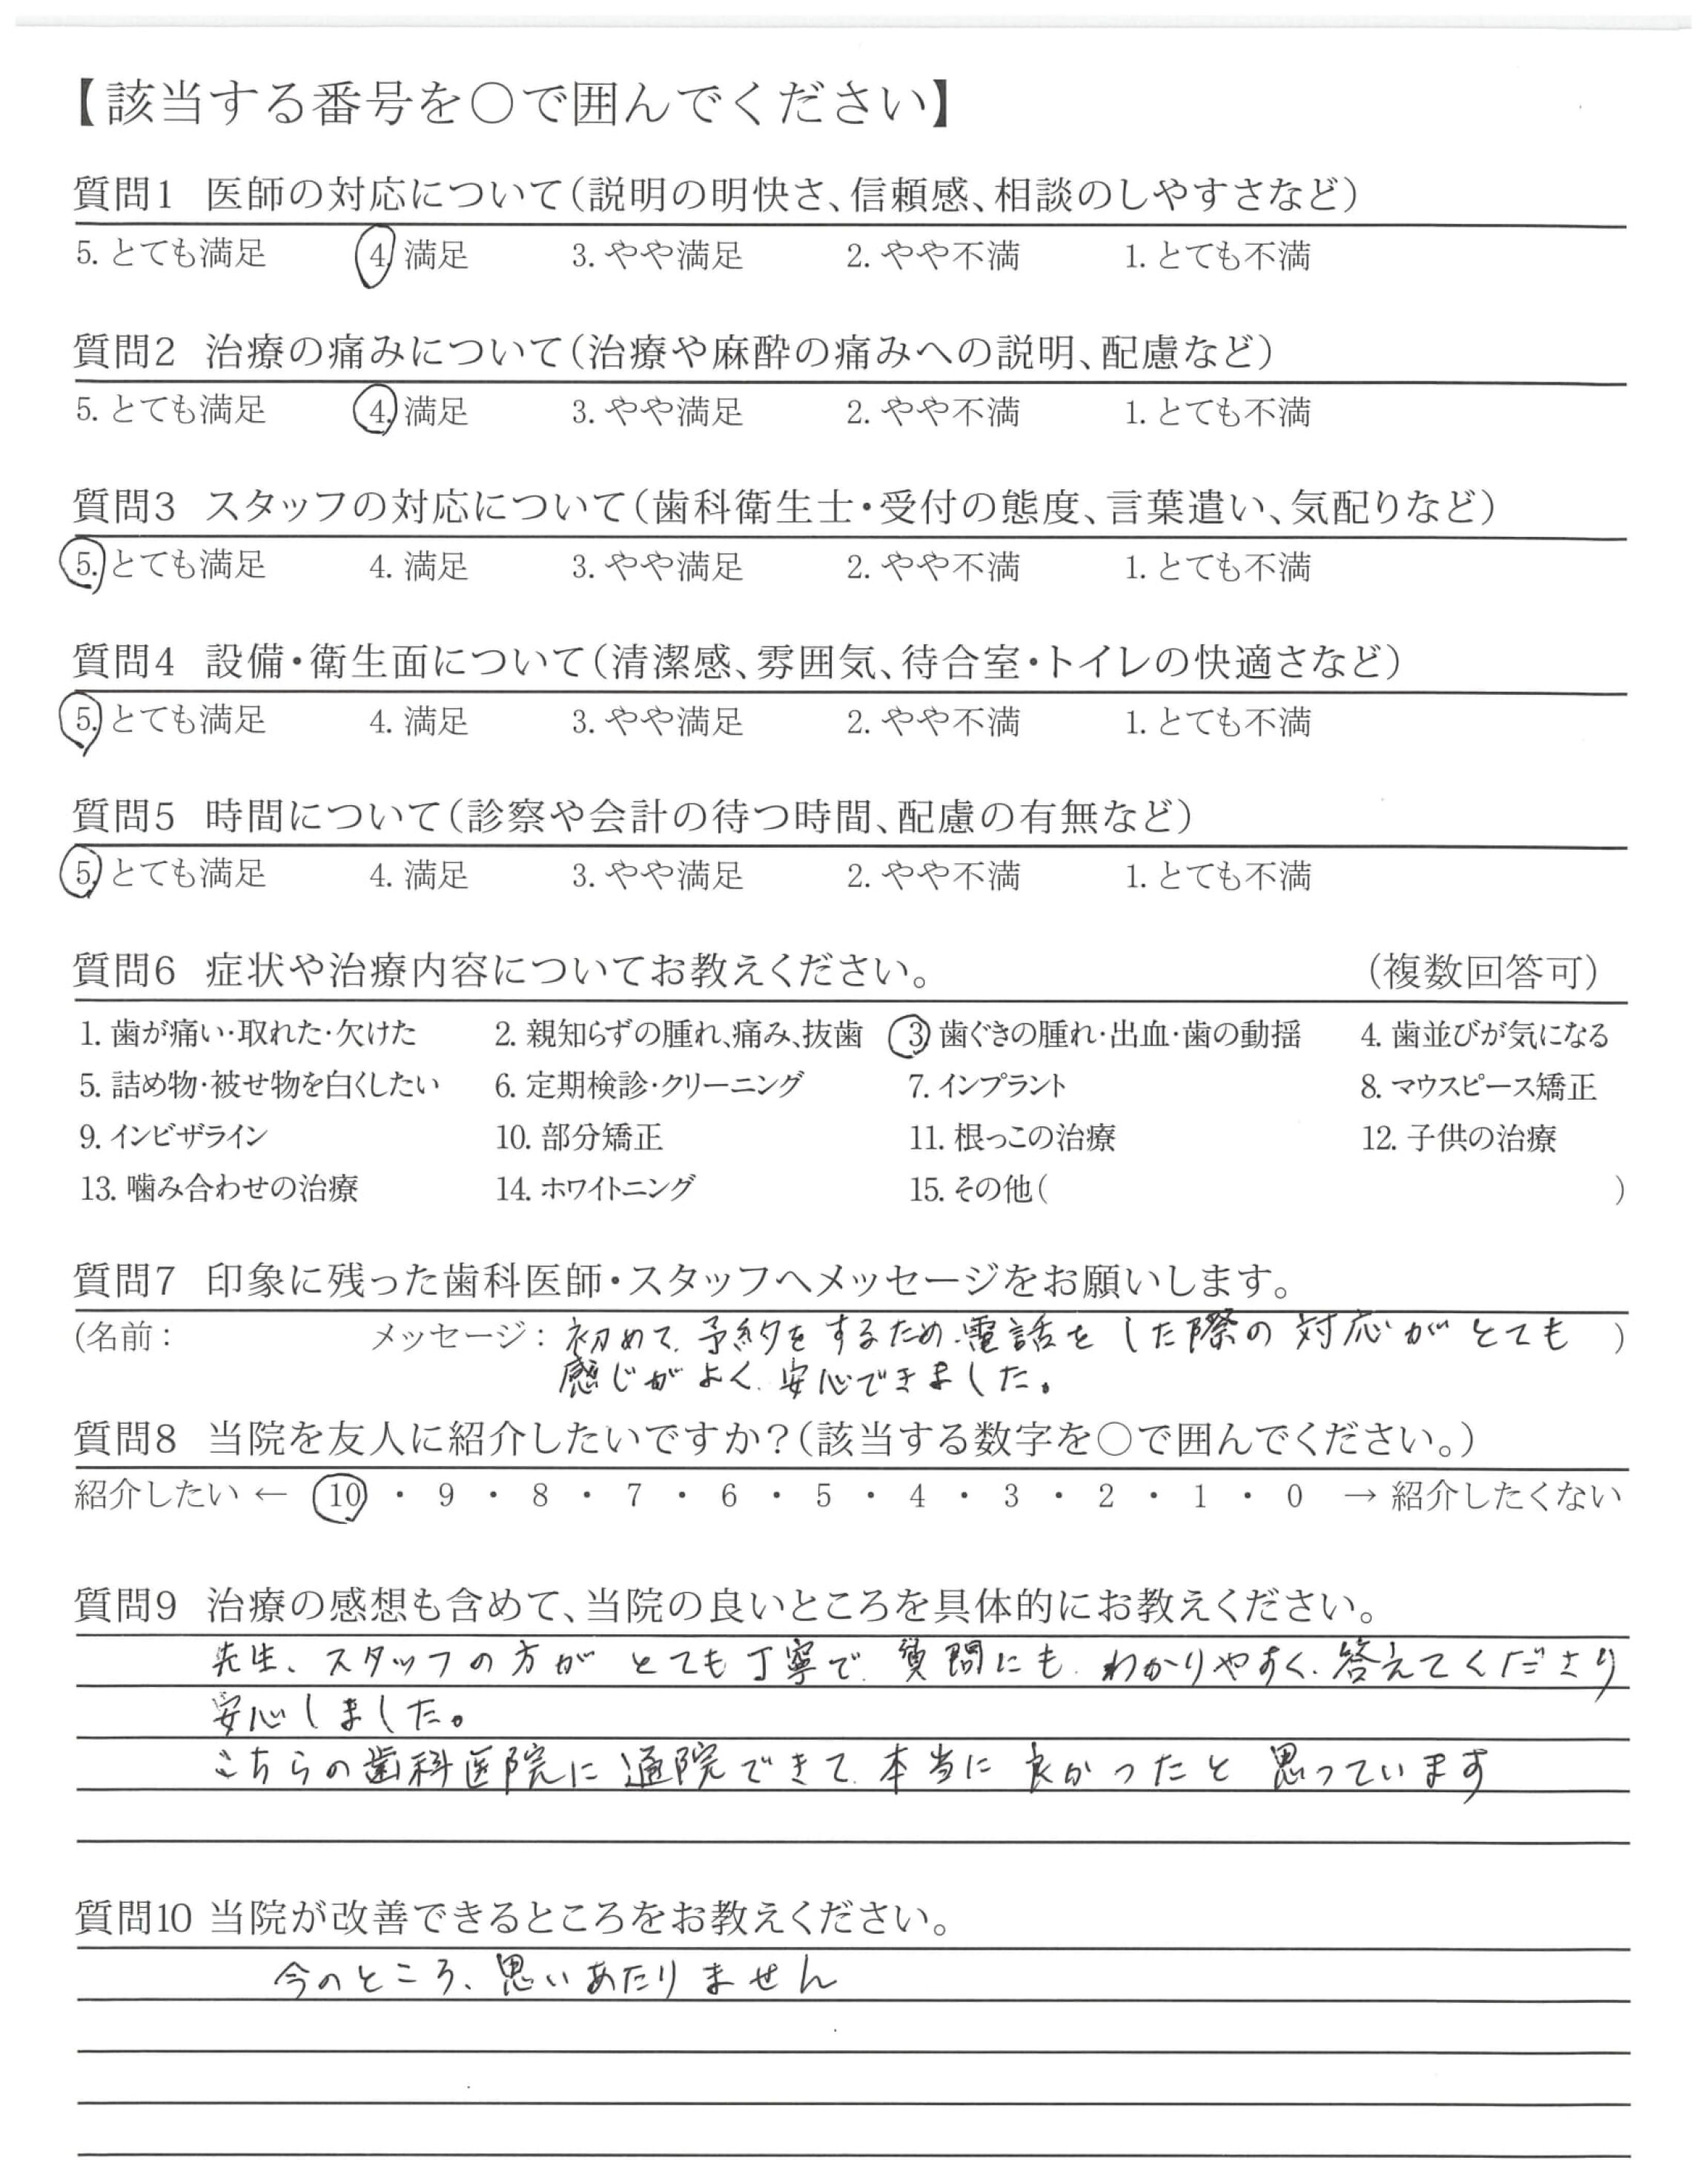 【該当する番号を○で囲んでください】
質問1 医師の対応について(説明の明快さ、信頼感、相談のしやすさなど)
5. とても満足 4. 満足 3. やや満足 2. やや不満 1. とても不満
質問2 治療の痛みについて(治療や麻酔の痛みへの説明、配慮など)
5. とても満足 4. 満足 3. やや満足 2. やや不満 1. とても不満
質問3 スタッフの対応について(歯科衛生士・受付の態度、言葉遣い、気配りなど)
5. とても満足 4. 満足 3. やや満足 2. やや不満 1. とても不満
質問4 設備・衛生面について(清潔感、雰囲気、待合室・トイレの快適さなど)
5. とても満足 4. 満足 3. やや満足 2. やや不満 1. とても不満
質問5 時間について(診察や会計の待つ時間、配慮の有無など)
5. とても満足 4. 満足 3. やや満足 2. やや不満 1. とても不満
質問6 症状や治療内容についてお教えください。 (複数回答可)
1. 歯が痛い・取れた・欠けた 2. 親知らずの腫れ、痛み、抜歯 3. 歯ぐきの腫れ・出血・歯の動揺 4. 歯並びが気になる
5. 詰め物・被せ物を白くしたい 6. 定期検診・クリーニング 7. インプラント 8. マウスピース矯正
9. インビザライン 10. 部分矯正 11. 根っこの治療 12. 子供の治療
13. 噛み合わせの治療 14. ホワイトニング 15. その他( )
質問7 印象に残った歯科医師・スタッフへメッセージをお願いします。
(名前: メッセージ: 初めて、予約をするため、電話をした際の対応がとても )
感じがよく、安心できました。
質問8 当院を友人に紹介したいですか?(該当する数字を○で囲んでください。)
紹介したい ← 10 ・ 9 ・ 8 ・ 7 ・ 6 ・ 5 ・ 4 ・ 3 ・ 2 ・ 1 ・ 0 → 紹介したくない
質問9 治療の感想も含めて、当院の良いところを具体的にお教えください。
先生、スタッフの方がとても丁寧で、質問にも、わかりやすく、答えてくださり
安心しました。
こちらの歯科医院に通院できて、本当に良かったと思っています
質問10 当院が改善できるところをお教えください。
今のところ、思いあたりません